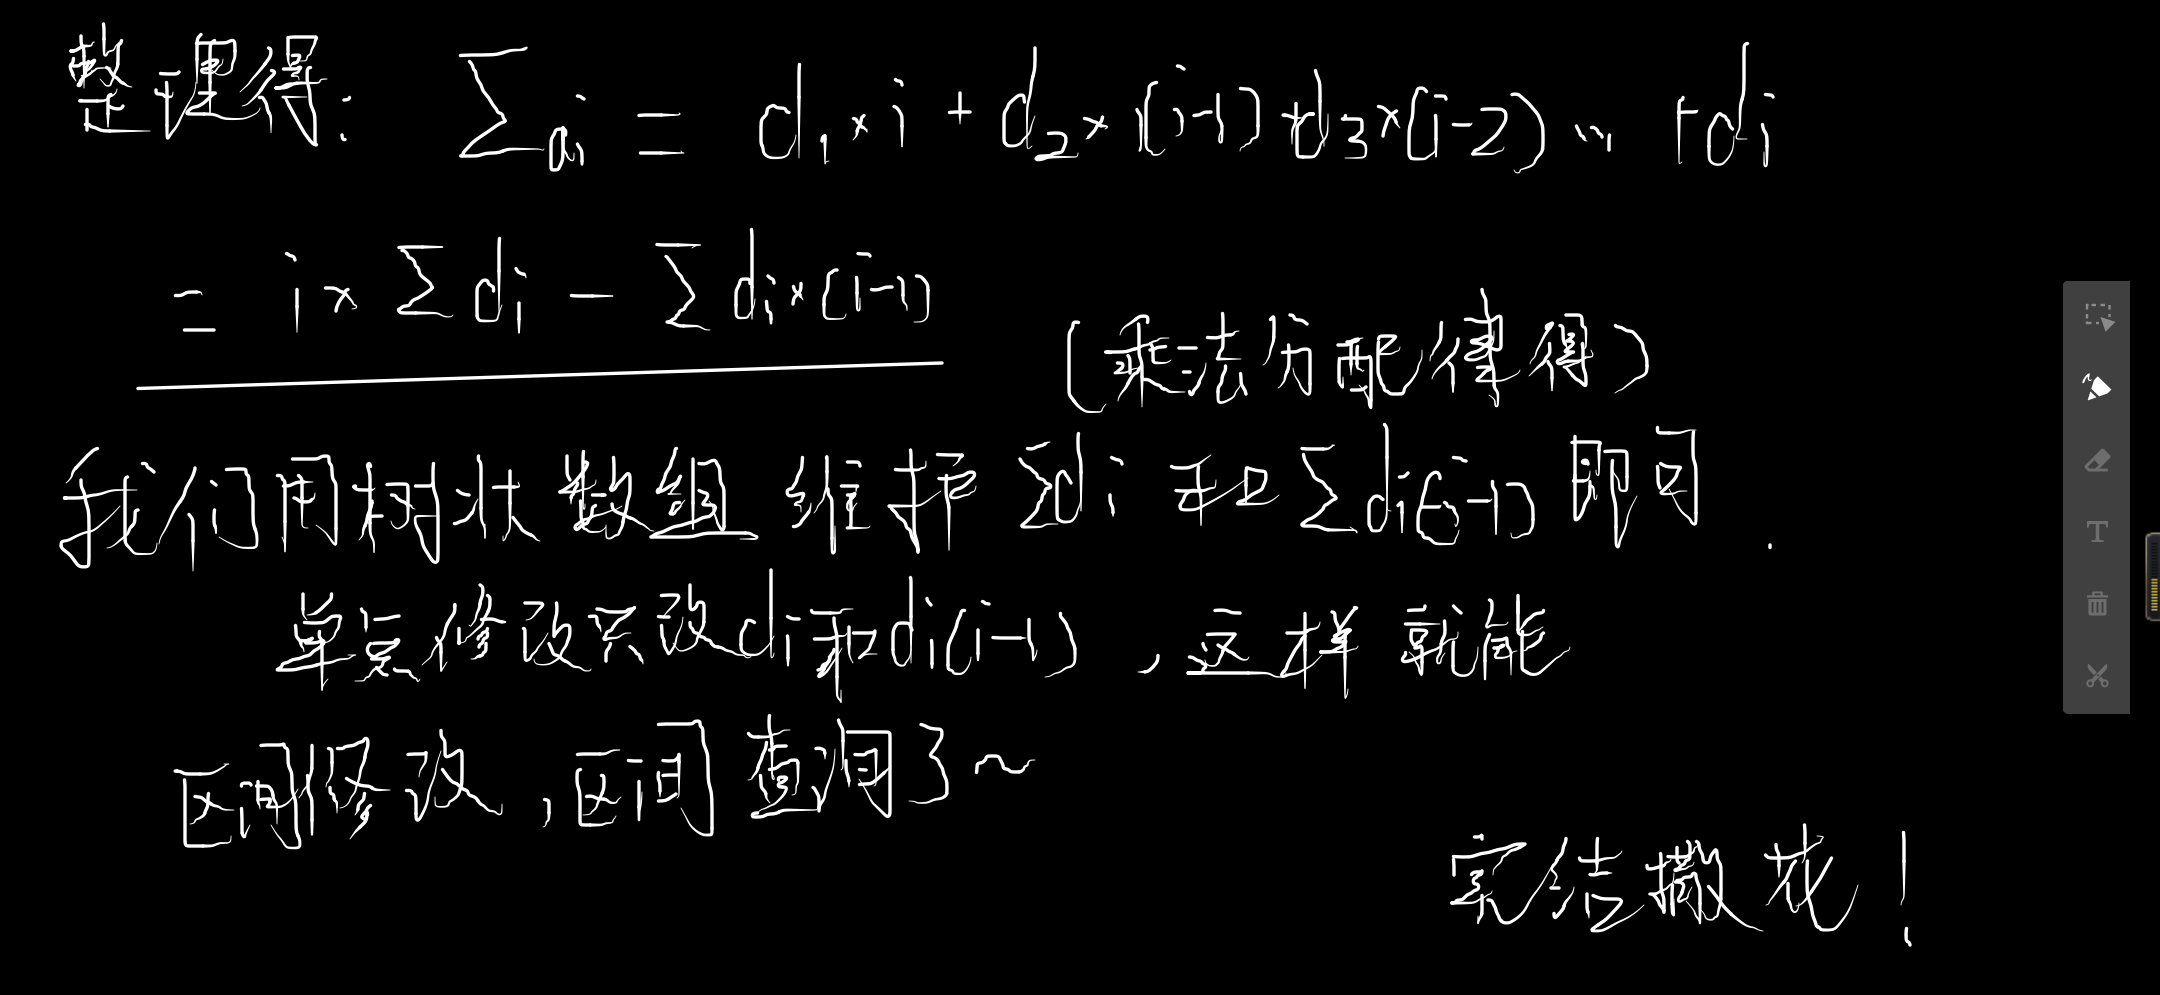 整理得: ∑ai = d₁×i + d₂×(i-1)+d₃×(i-2)…+di
= i×∑di - ∑di×(i-1)
(乘法分配律得)
我们用树状数组维护∑di和∑di(i-1)即可.
单点修改只改di和di(i-1),这样就能
区间修改,区间查询了~
完结撒花!
T